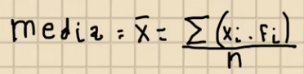 media = x̄ = Σ(xi . Fi) / n